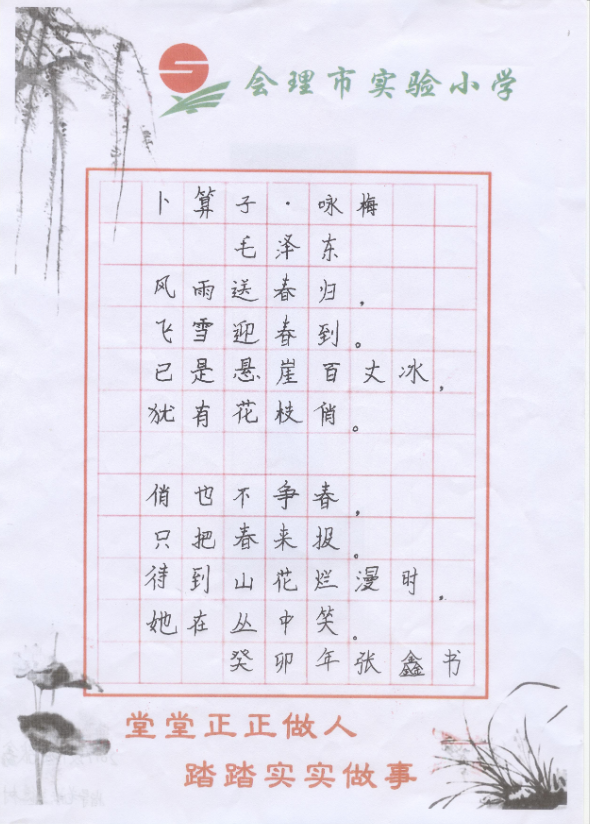 会理市实验小学
卜算子·咏梅
毛泽东
风雨送春归，
飞雪迎春到。
已是悬崖百丈冰，
犹有花枝俏。
俏也不争春，
只把春来报。
待到山花烂漫时，
她在丛中笑。
癸卯年张鑫书
堂堂正正做人
踏踏实实做事